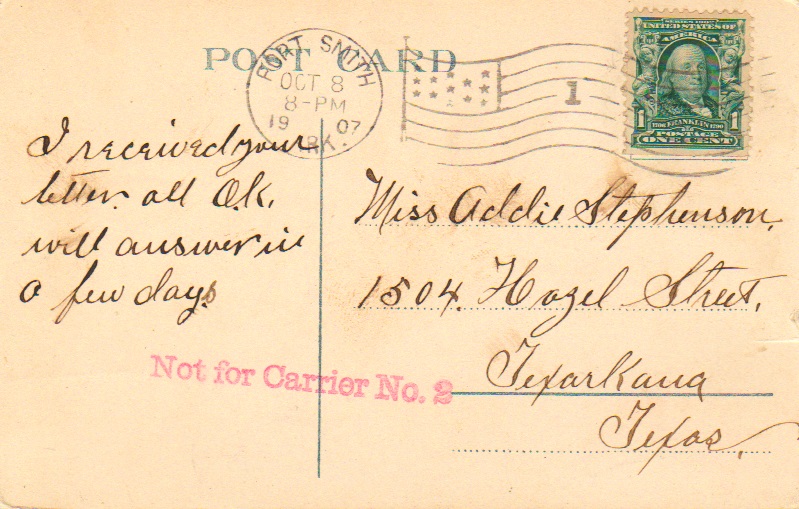 POST CARD
FORT SMITH
ARK.
OCT 8
8-PM
19 07
1
SERIES 1902
UNITED STATES OF
AMERICA
1 1706 FRANKLIN 1790 1
POSTAGE
ONE CENT
I received your
letter all O.K.
will answer in
a few days
Miss Addie Stephenson,
1504. Hazel Street,
Texarkana
Texas.
Not for Carrier No. 2